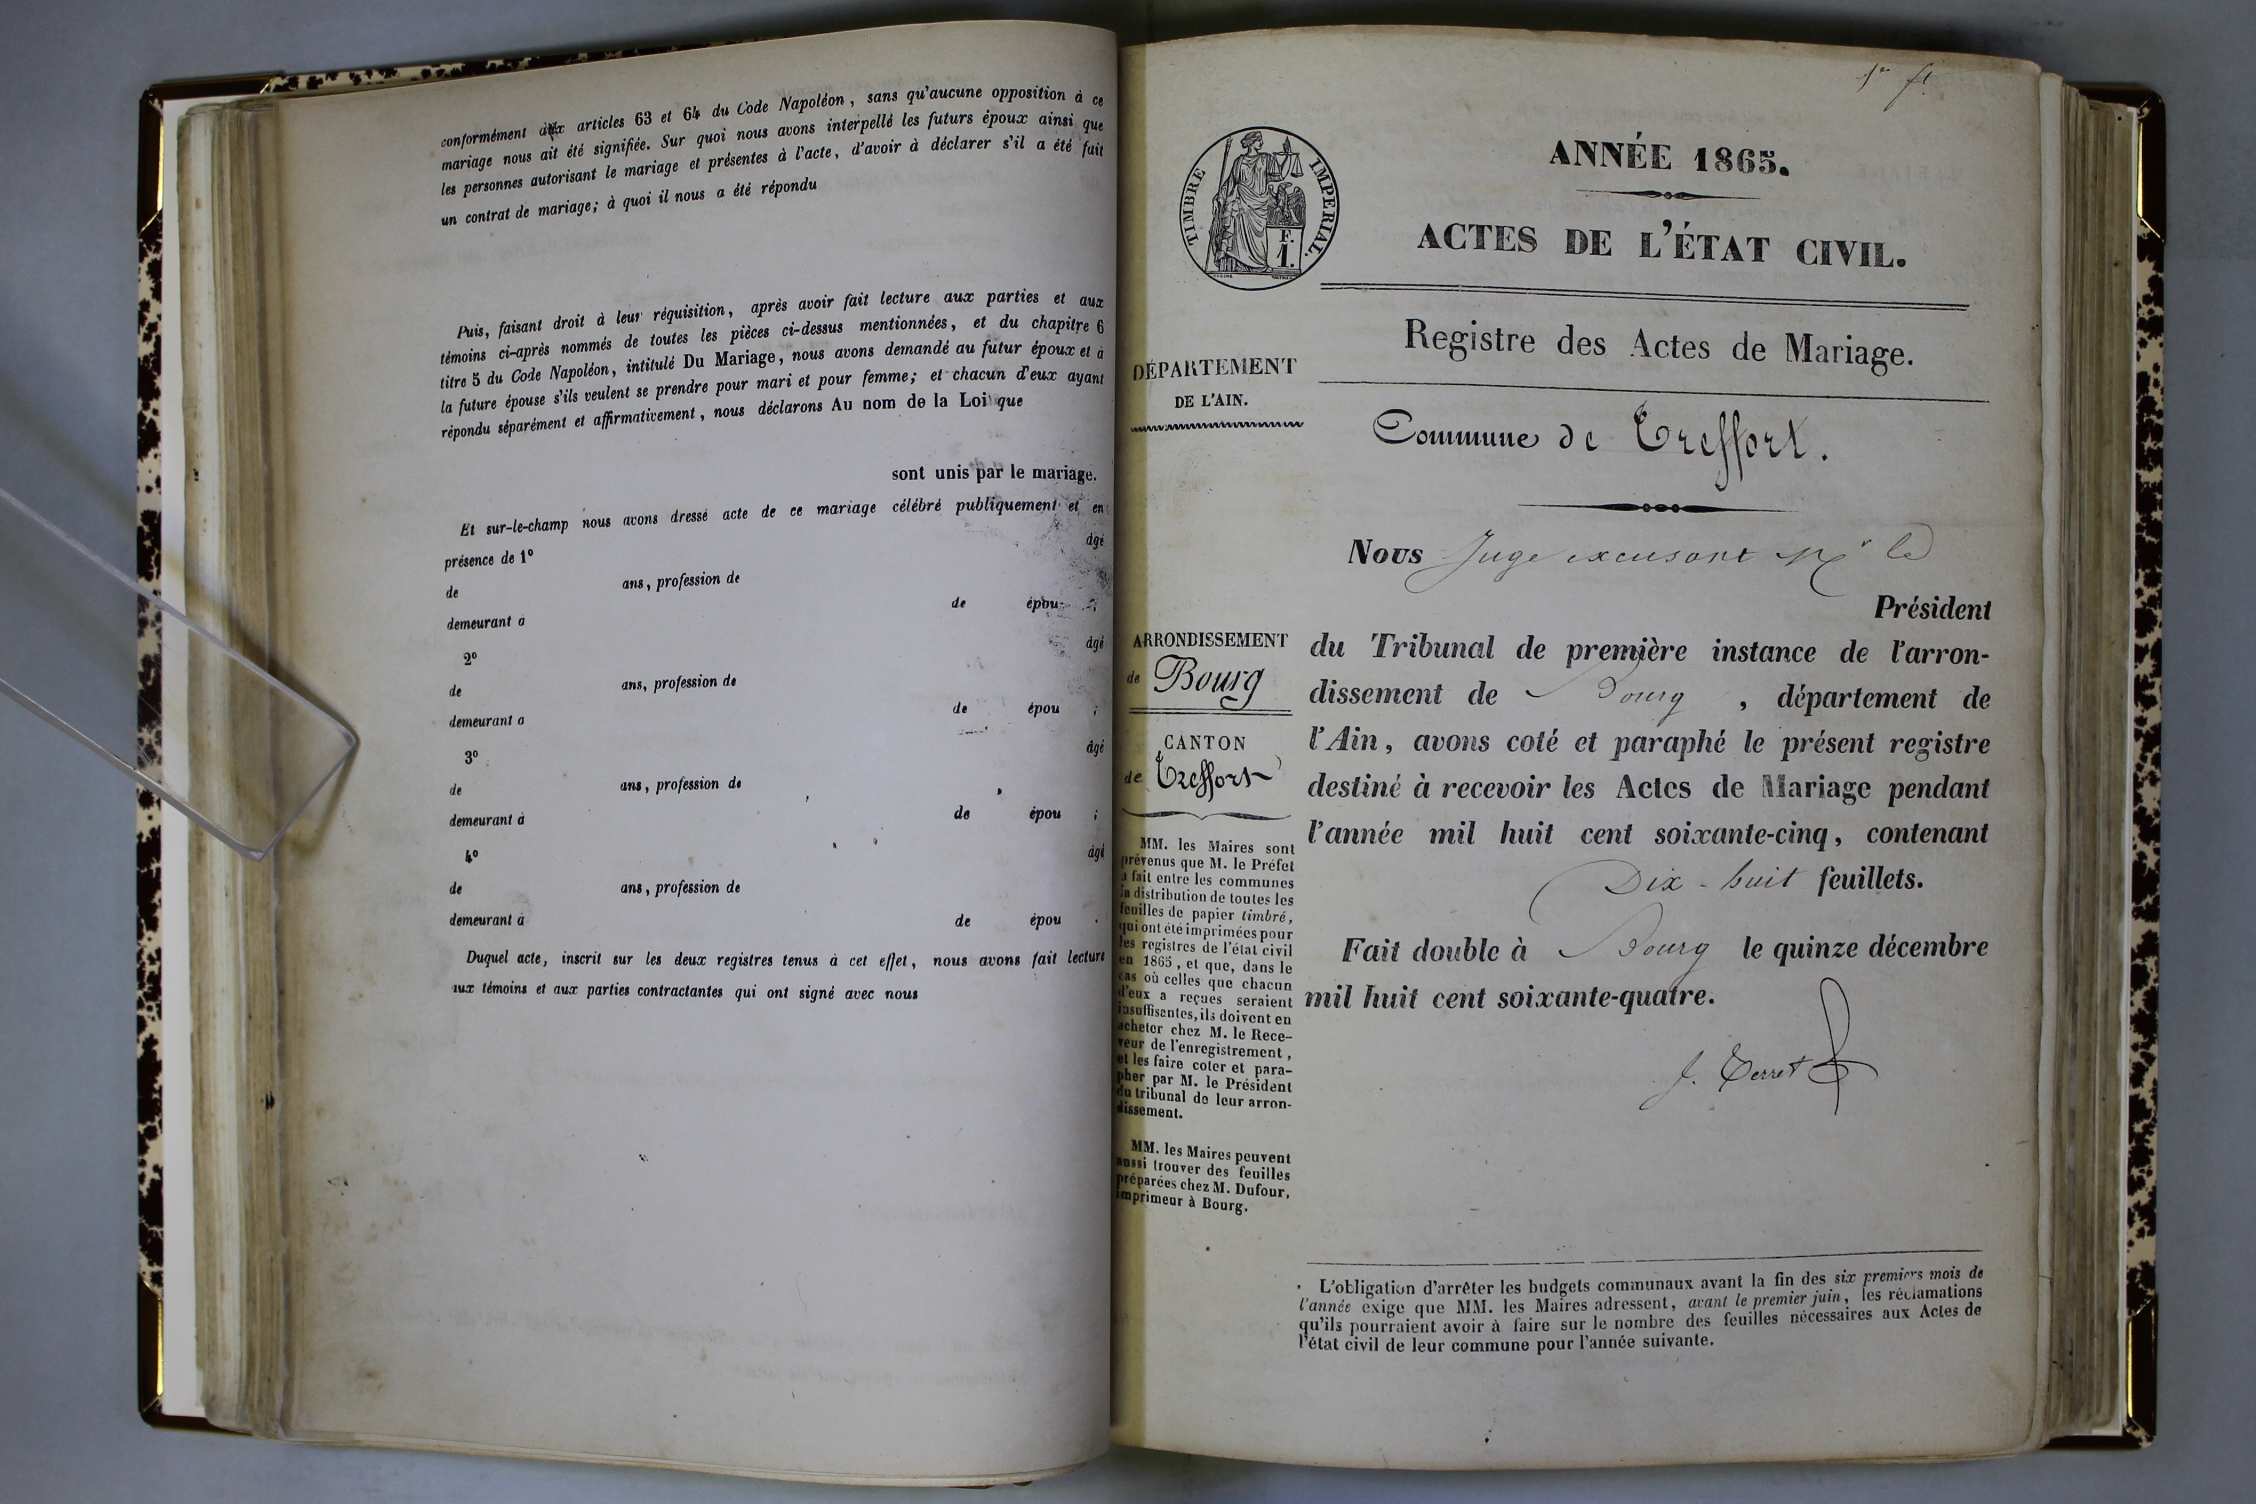 conformément aux articles 63 et 64 du Code Napoléon, sans qu'aucune opposition à ce
mariage nous ait été signifiée. Sur quoi nous avons interpellé les futurs époux ainsi que
les personnes autorisant le mariage et présentes à l'acte, d'avoir à déclarer s'il a été fait
un contrat de mariage; à quoi il nous a été répondu
Puis, faisant droit à leur réquisition, après avoir fait lecture aux parties et aux
témoins ci-après nommés de toutes les pièces ci-dessus mentionnées, et du chapitre 6
titre 5 du Code Napoléon, intitulé Du Mariage, nous avons demandé au futur époux et à
la future épouse s'ils veulent se prendre pour mari et pour femme; et chacun d'eux ayant
répondu séparément et affirmativement, nous déclarons Au nom de la Loi que
sont unis par le mariage.
Et sur-le-champ nous avons dressé acte de ce mariage célébré publiquement et en
présence de 1° âgé
de ans, profession de
demeurant à de épou ;
2° âgé
de ans, profession de
demeurant à de épou ;
3° âgé
de ans, profession de
demeurant à de épou ;
4° âgé
de ans, profession de
demeurant à de épou .
Duquel acte, inscrit sur les deux registres tenus à cet effet, nous avons fait lecture
aux témoins et aux parties contractantes qui ont signé avec nous
1er ft
TIMBRE IMPERIAL.
F.
1.
ANNÉE 1865.
ACTES DE L'ÉTAT CIVIL.
Registre des Actes de Mariage.
Commune de Treffort.
DÉPARTEMENT
DE L'AIN.
ARRONDISSEMENT
de Bourg
CANTON
de Treffort
MM. les Maires sont
prévenus que M. le Préfet
a fait entre les communes
la distribution de toutes les
feuilles de papier timbré,
qui ont été imprimées pour
les registres de l'état civil
en 1865, et que, dans le
cas où celles que chacun
d'eux a reçues seraient
insuffisantes, ils doivent en
acheter chez M. le Rece-
veur de l'enregistrement,
et les faire coter et para-
pher par M. le Président
du tribunal de leur arron-
dissement.
MM. les Maires peuvent
aussi trouver des feuilles
préparées chez M. Dufour,
imprimeur à Bourg.
Nous Juge excusant Mr le
Président
du Tribunal de première instance de l'arron-
dissement de Bourg, département de
l'Ain, avons coté et paraphé le présent registre
destiné à recevoir les Actes de Mariage pendant
l'année mil huit cent soixante-cinq, contenant
Dix-huit feuillets.
Fait double à Bourg le quinze décembre
mil huit cent soixante-quatre.
J. Terret
L'obligation d'arrêter les budgets communaux avant la fin des six premiers mois de
l'année exige que MM. les Maires adressent, avant le premier juin, les réclamations
qu'ils pourraient avoir à faire sur le nombre des feuilles nécessaires aux Actes de
l'état civil de leur commune pour l'année suivante.